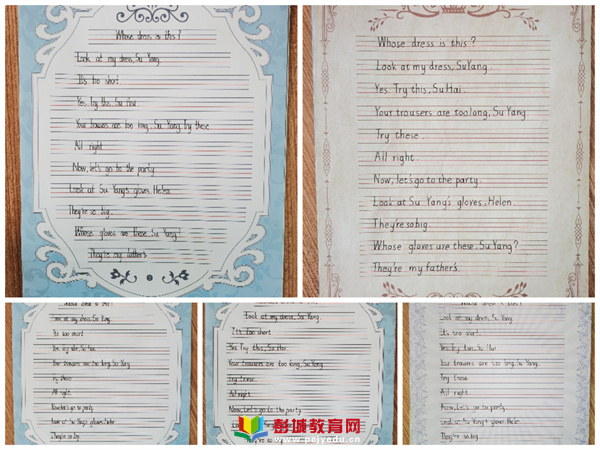 Whose dress is this?
Look at my dress, Su Yang.
It's too short.
Yes. Try this, Su Hai.
Your trousers are too long, Su Yang. Try these.
All right.
Now, let's go to the party.
Look at Su Yang's gloves, Helen.
They're so big.
Whose gloves are these, Su Yang?
They're my father's.
Whose dress is this?
Look at my dress, Su Yang.
Yes. Try this, Su Hai.
Your trousers are too long, Su Yang.
Try these.
All right.
Now, let's go to the party.
Look at Su Yang's gloves, Helen.
They're so big.
Whose gloves are these, Su Yang?
They're my father's.
Look at my dress, Su Yang.
It's too short.
Your trousers are too long, Su Yang
All right.
Now, let's go to party.
They're so big
Look at my dress, Su Yang.
It's too short.
Yes. Try this, Su Hai.
Your trousers are too long, Su Yang.
Try these.
All right.
Now, Let's go to the party
They're so
Whose dress is this?
Look at my dress, Su Yang.
It's too short.
Yes. Try this, Su Hai
Your trousers are too long, Su Yang.
Try these.
All right.
Now, Let's go to party.
Look at Su Yang's gloves, Helen.
They're so big.
彭城教育网
www.pcjyedu.cn